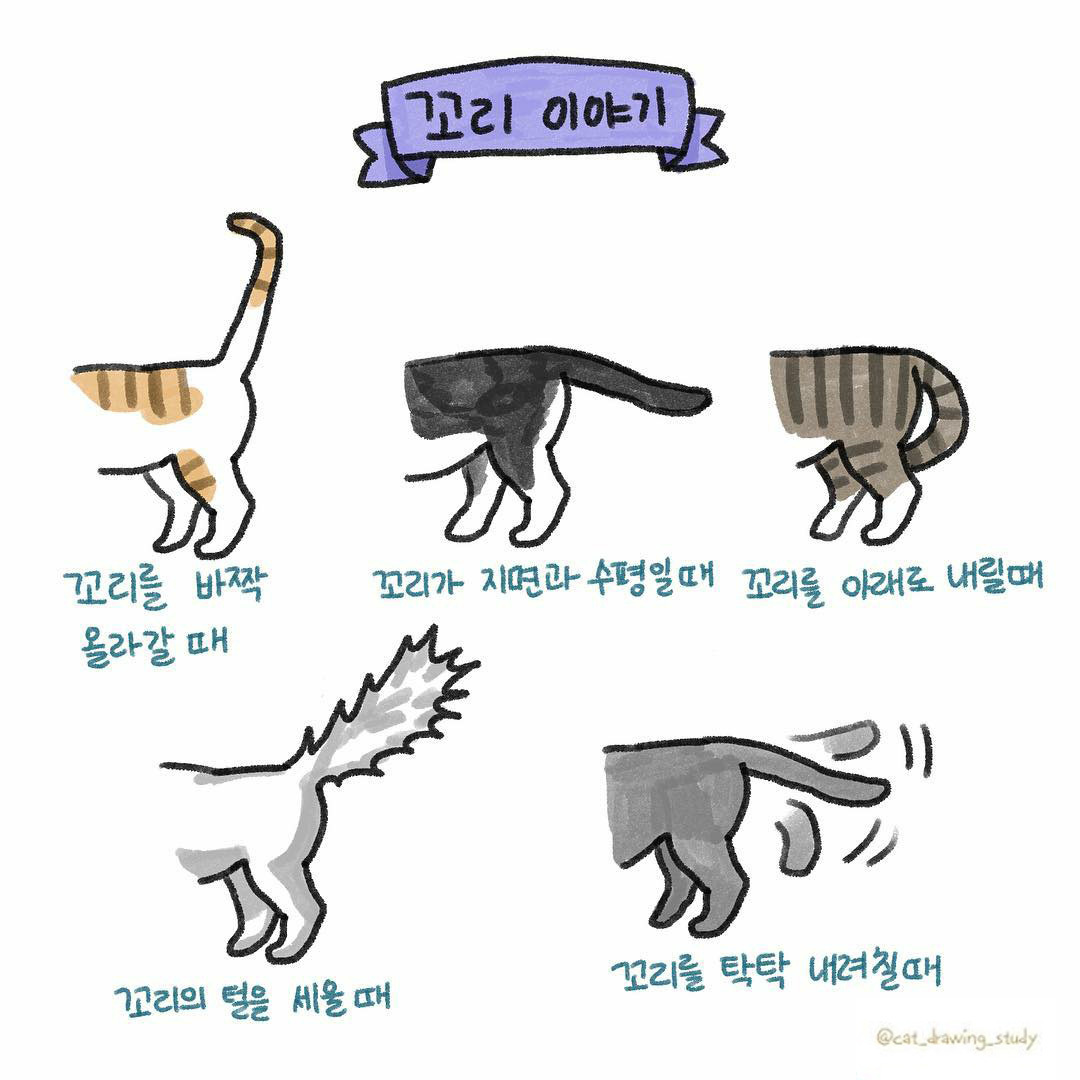 꼬리 이야기
꼬리를 바짝
올라갈 때
꼬리가 지면과 수평일때
꼬리를 아래로 내릴때
꼬리의 털을 세울 때
꼬리를 탁탁 내려칠때
@cat_drawing_study